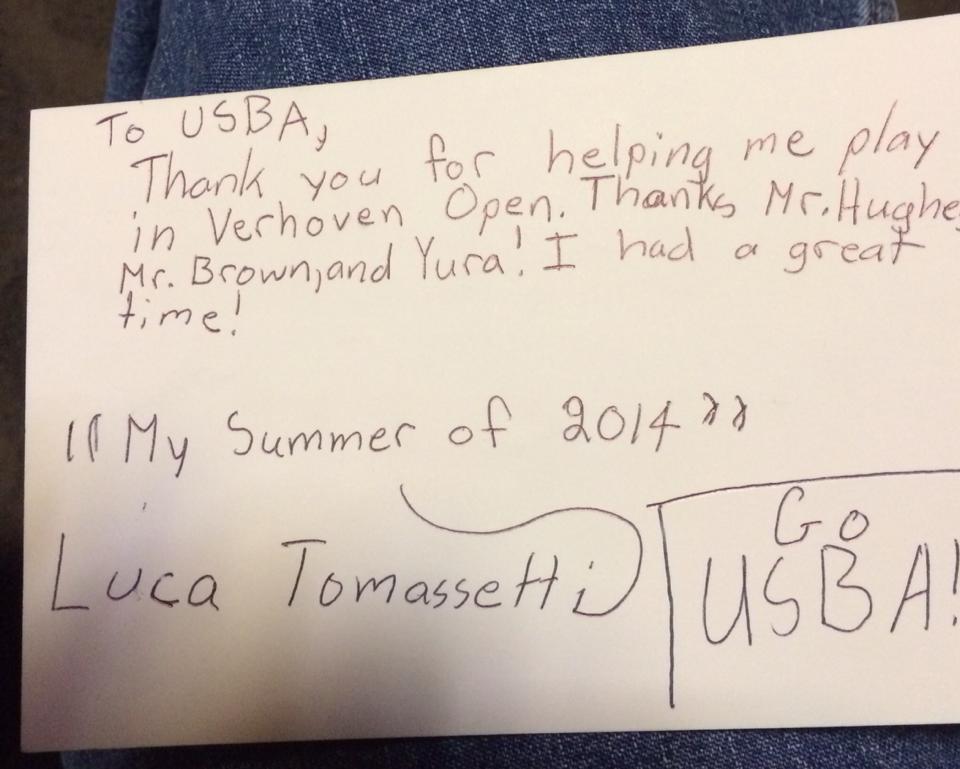 To USBA,
Thank you for helping me play
in Verhoven Open. Thanks Mr. Hughes
Mr. Brown, and Yura! I had a great
time!
"My Summer of 2014"
Luca Tomassetti
Go
USBA!